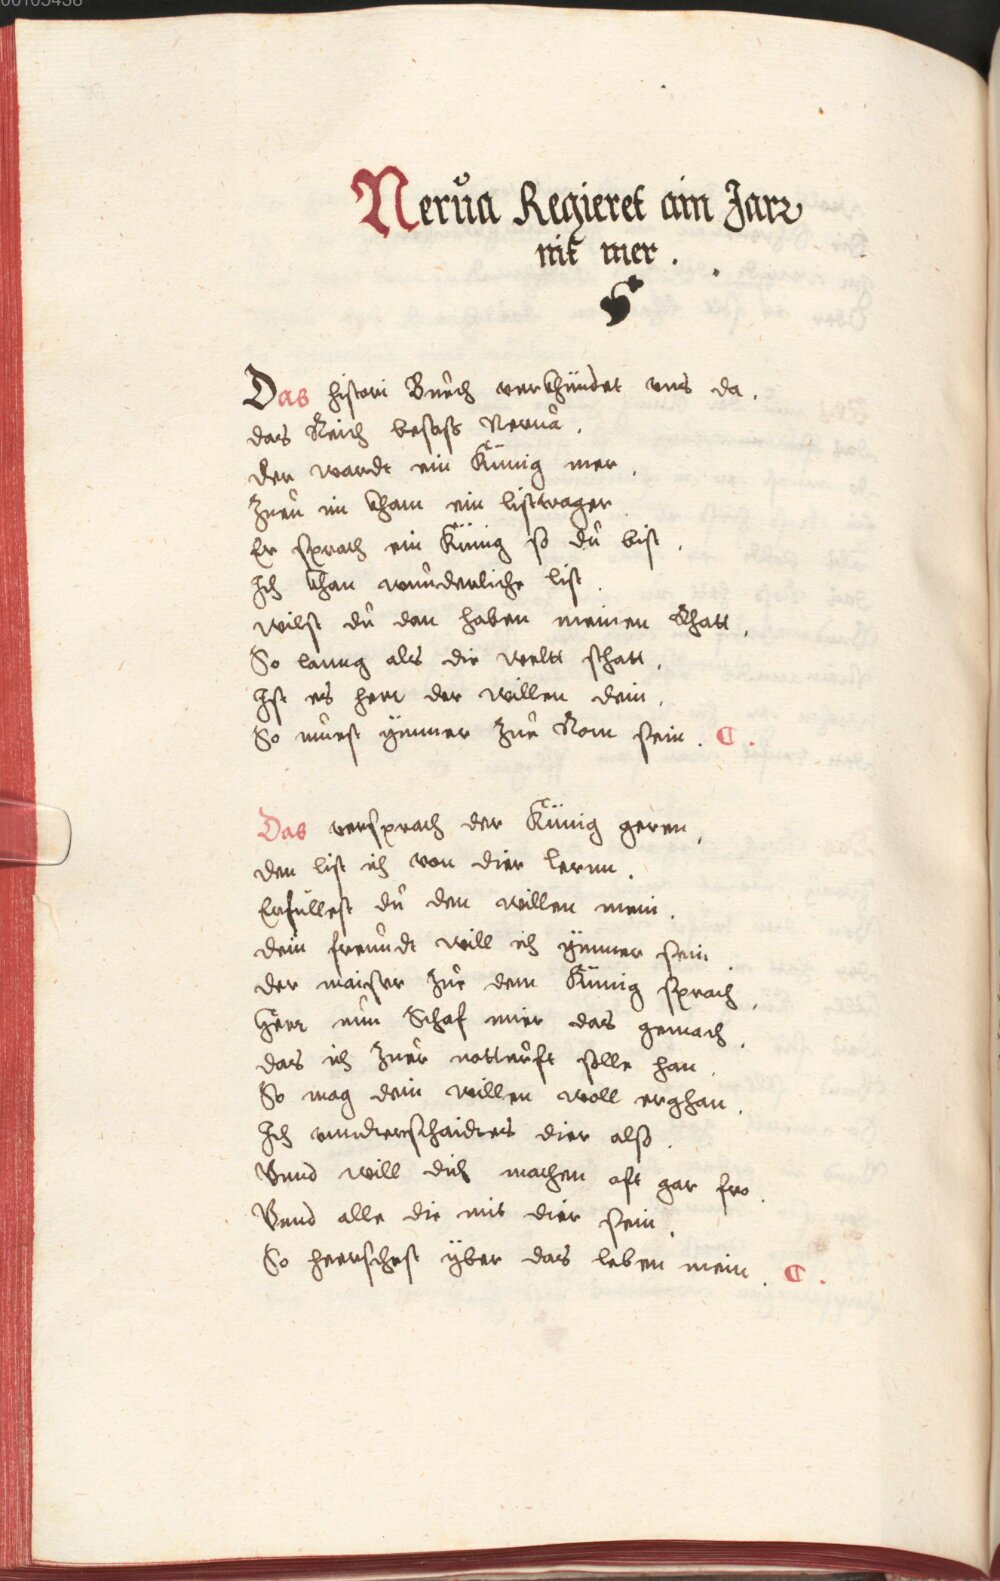 00103438
Nerŭa Regieret ain Jarr
nit mer.
Das histori Buech verkhündet vns da.
das Reich besass Nerua.
Der wardt ein Künig mer.
Zue im kham ein listtrager
Er sprach ein Künig so du bist.
Ich khan wunderliche list.
wilst du dan haben meinen Rhatt.
So lanng als die weltt statt.
Ist es herr der willen dein.
So muest ymmer Zue Rom sein. C.
Das versprach der Künig geren.
den list ich von dier lernn.
Erfüllest du den willen mein.
dein freundt will ich ymmer sein.
der maister Zue dem Künig sprach.
Herr nun Schaf mier das gemach.
das ich Zuer notturft solle han.
So mag dein willen woll erghan.
Ich vnnderschaidess dier also.
Vnnd will dich machen oft gar fro.
Vnnd alle die mit dier sein.
So herrschest yber das leben mein. C.